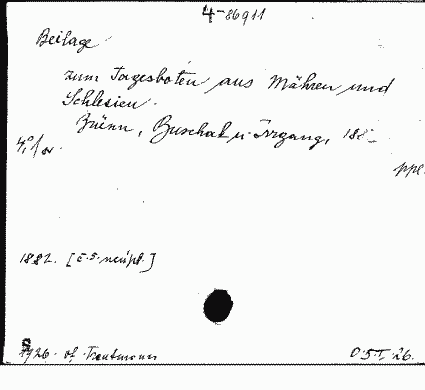 4-86911
Beilage
zum Tagesboten aus Mähren und
Schlesien.
Brünn, Buschak u. Irrgang, 188-
4° for.
ppl.
1882. [č. 5. neúpl.]
S
1926. of. Trautmann
O:5.I.26.